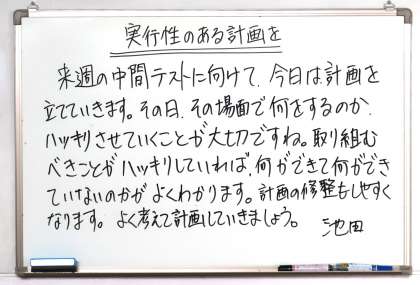 実行性のある計画を
来週の中間テストに向けて、今日は計画を
立てていきます。その日、その場面で何をするのか、
ハッキリさせていくことが大切ですね。取り組む
べきことがハッキリしていれば、何ができて何ができ
ていないのかがよくわかります。計画の修整もしやすく
なります。よく考えて計画していきましょう。 池田